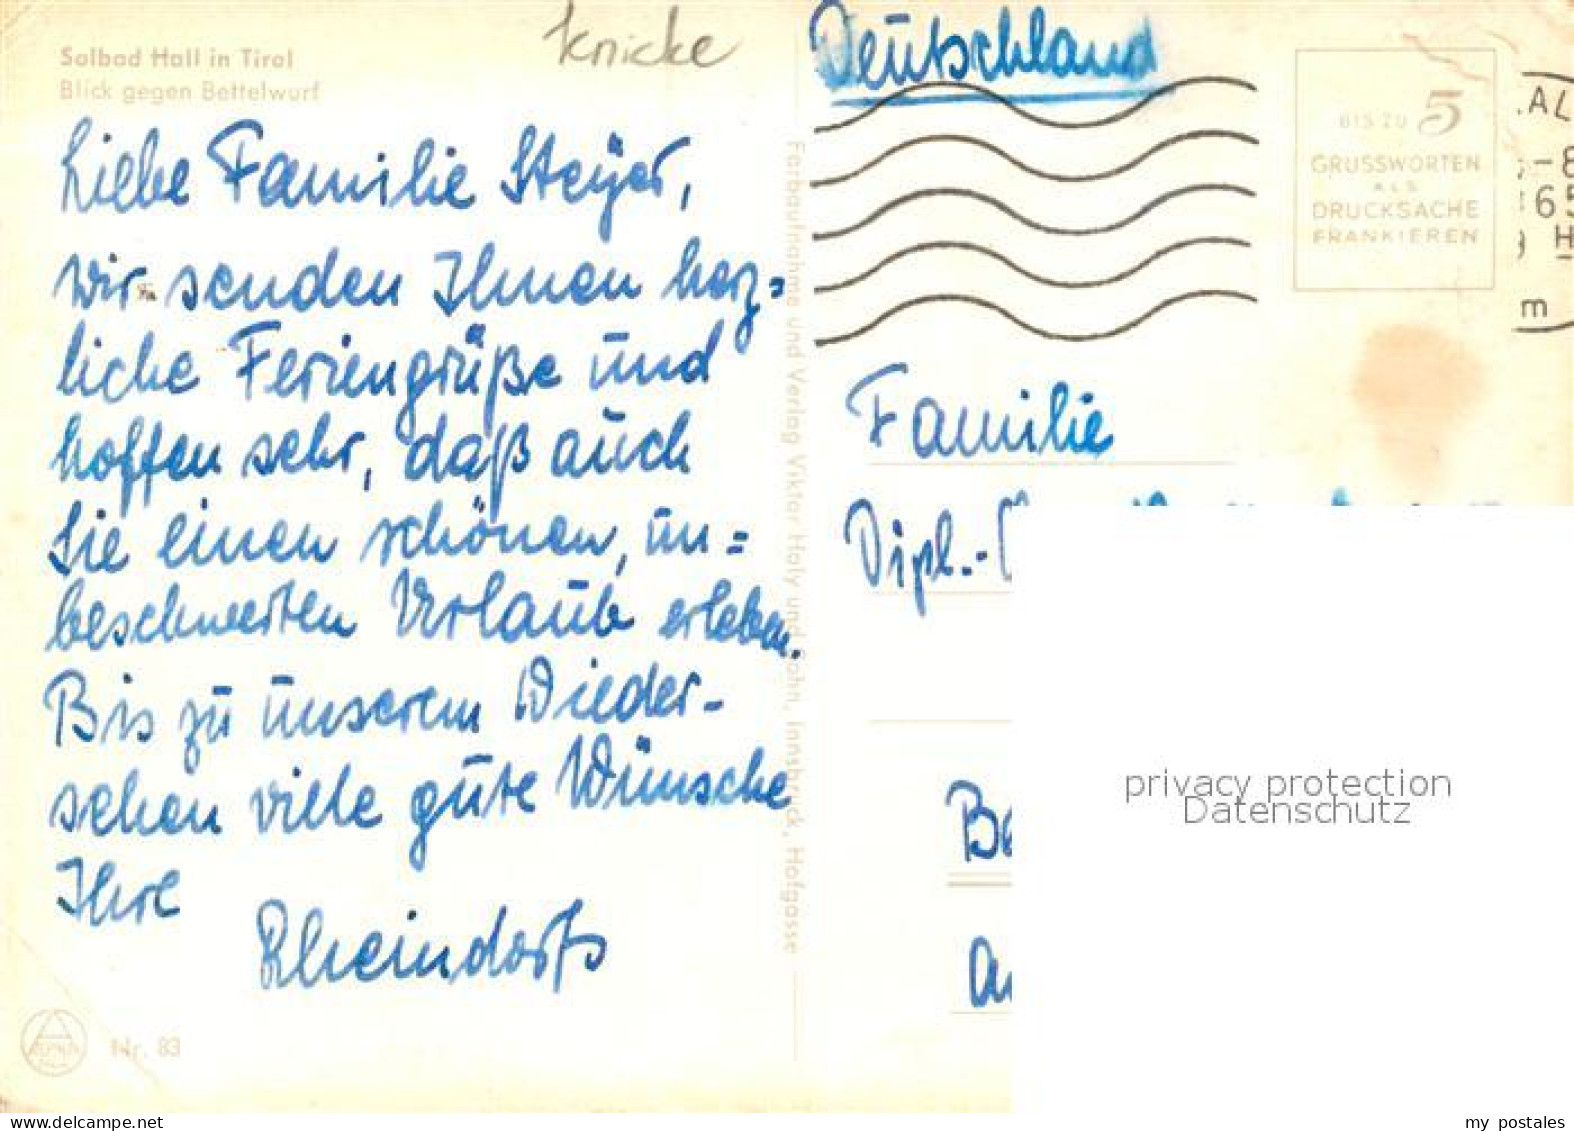 Solbad Hall in Tirol
Blick gegen Bettelwurf
Knicke
Liebe Familie Steyer,
wir senden Ihnen herz=
liche Feriengrüße und
hoffen sehr, daß auch
Sie einen schönen, un=
beschwerten Urlaub erleben.
Bis zu unserem Wieder-
sehen viele gute Wünsche
Ihre
Rheindorfs
Nr. 83
Farbaufnahme und Verlag Viktor Holy und Sohn, Innsbruck, Hofgasse
Deutschland
BIS ZU 5
GRUSSWORTEN
ALS
DRUCKSACHE
FRANKIEREN
.AL
-8
65
H
m
Familie
Dipl.-
Be
an
privacy protection
Datenschutz
my postales